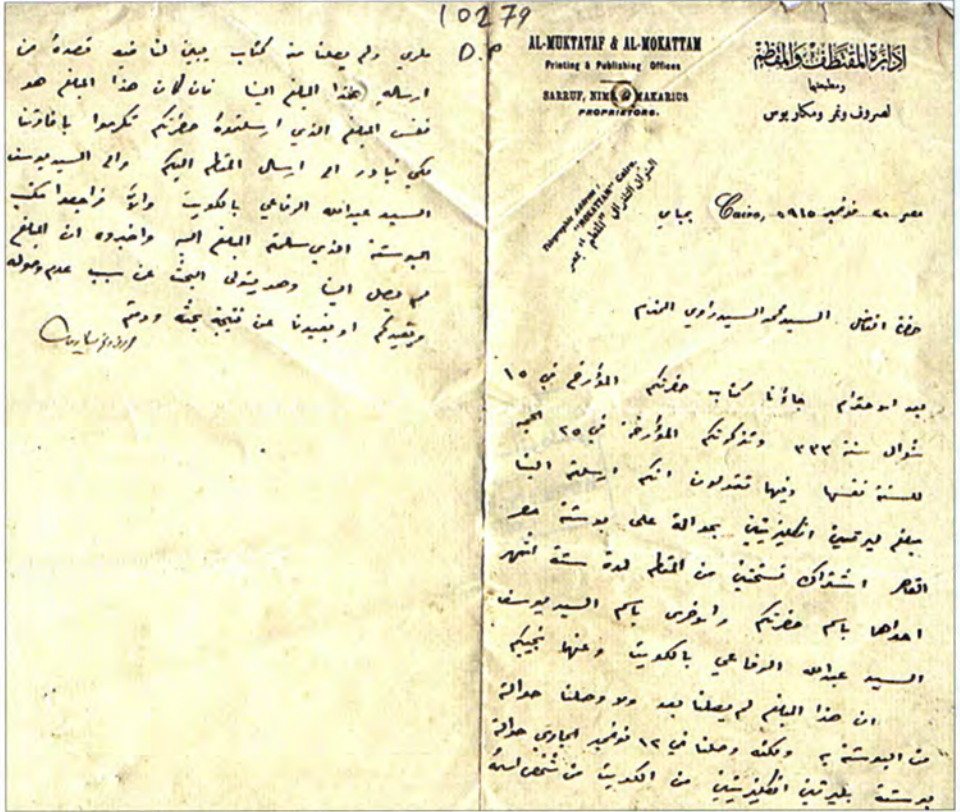 10279
O.P
AL-MUKTATAF & AL-MOKATTAM
Printing & Publishing Offices
SARRUF, NIMR & MAKARIUS
PROPRIETORS.
إدارة المقتطف والمقطم
ومطبعتها
لصروف ونمر ومكاريوس
Telegraphic Address:
"MOKATTAM" Cairo.
العنوان التلغرافي
"المقطم" بمصر
مصر ٢٠ نوفمبر ١٩١٥ Cairo,
حضرة الفاضل السيد محمد السيد راوي المحترم
بعد الاحترام جاءنا كتاب حضرتكم المؤرخ في ١٥
شوال سنة ٣٣٣ وتذكرتكم المؤرخة في ٢٥
للسنة نفسها وفيها تقولون انكم ارسلتم الينا
مبلغ ليرتين انكليزيتين بحوالة على بوستة مصر
القاهرة اشتراك نسختين من المقطم لمدة ستة اشهر
احداها باسم حضرتكم والاخرى باسم السيد يوسف
السيد عبدالله الرفاعي بالكويت وعنها نجيبكم
ان هذا المبلغ لم يصلنا بعد ولا وصلنا حوالة
من البوستة به ولكنه وصلنا في ١٢ نوفمبر الجاري حوالة
بوستة بليرتين انكليزيتين من الكويت من شخص اسمه
ولم يصلنا منه كتاب يبين لنا فيه قصده من
ارسال هذا المبلغ الينا فان كان هذا المبلغ هو
نفس المبلغ الذي ارسلتموه حضرتكم تكرموا بافادتنا
لكي نبادر الى ارسال المقطم اليكم والى السيد يوسف
السيد عبدالله الرفاعي بالكويت والا فراجعوا مكتب
البوستة الذي سلمتم المبلغ اليه واخبروه ان المبلغ
لم يصل الينا وهو يتولى البحث عن سبب عدم وصوله
ويفيدكم او يفيدنا عن نتيجة بحثه ودمتم